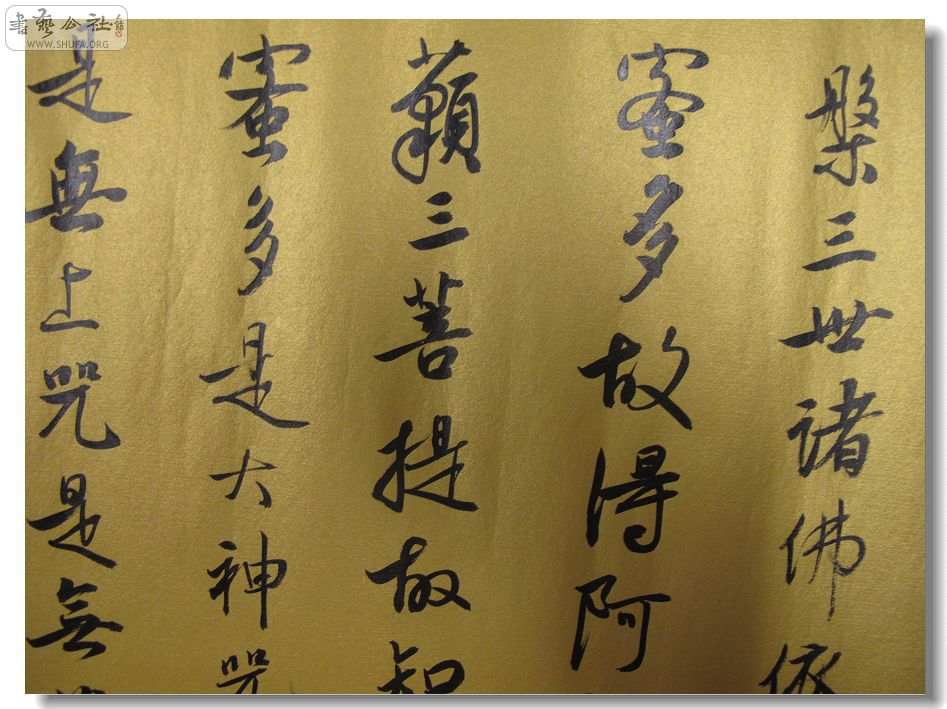 槃三世諸佛依
蜜多故得阿
藐三菩提故知
蜜多是大神咒
是無上咒是無
書藝公社
WWW.SHUFA.ORG